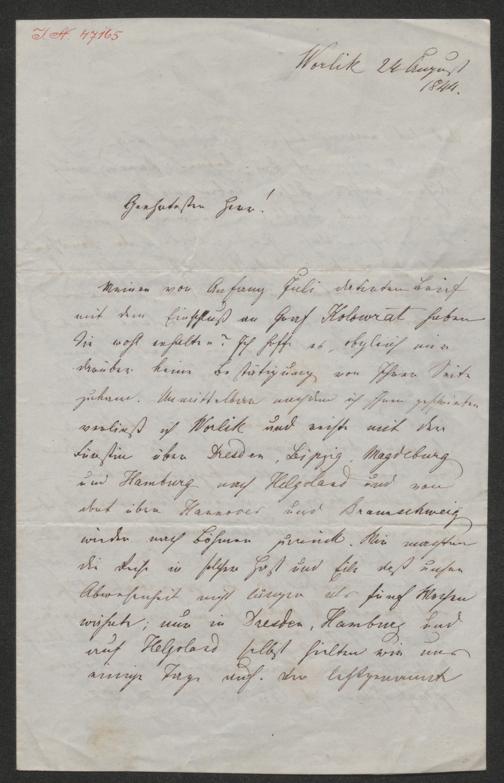 I. N. 47165
Worlik 24 August
1844.
Geehrtester Herr!
Meinen von Anfang Juli datirten Brief
mit dem Einschluß an Graf Kolowrat haben
Sie wohl erhalten? Ich hoffe es, obgleich mir
darüber keine Bestätigung von Ihrer Seite
zukam. Unmittelbar nachdem ich Ihnen geschrieben
verließ ich Worlik und reiste mit der
Fürstin über Dresden, Leipzig, Magdeburg
und Hamburg nach Helgoland und von
dort über Hannover und Braunschweig
wieder nach Böhmen zurück. Wir machten
die Reise in solcher Hast und Eile daß unsere
Abwesenheit nicht länger als fünf Wochen
währte; nur in Dresden, Hamburg und
auf Helgoland selbst hielten wir uns
einige Tage auf. Die letztgenannte